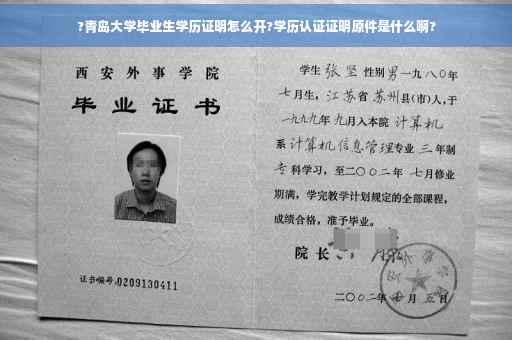 ?青岛大学毕业生学历证明怎么开?学历认证证明原件是什么啊?
西安外事学院
毕业证书
证书编号:0209130411
学生 张坚 性别 男 一九八〇年
七月生, 江苏省 苏州县(市)人,于
一九九九年 九月入本院 计算机
系 计算机信息管理专业 三 年制
专 科学习, 至二〇〇二年 七月修业
期满, 学完教学计划规定的全部课程,
成绩合格, 准予毕业。
院 长
二〇〇二年 月 五 日